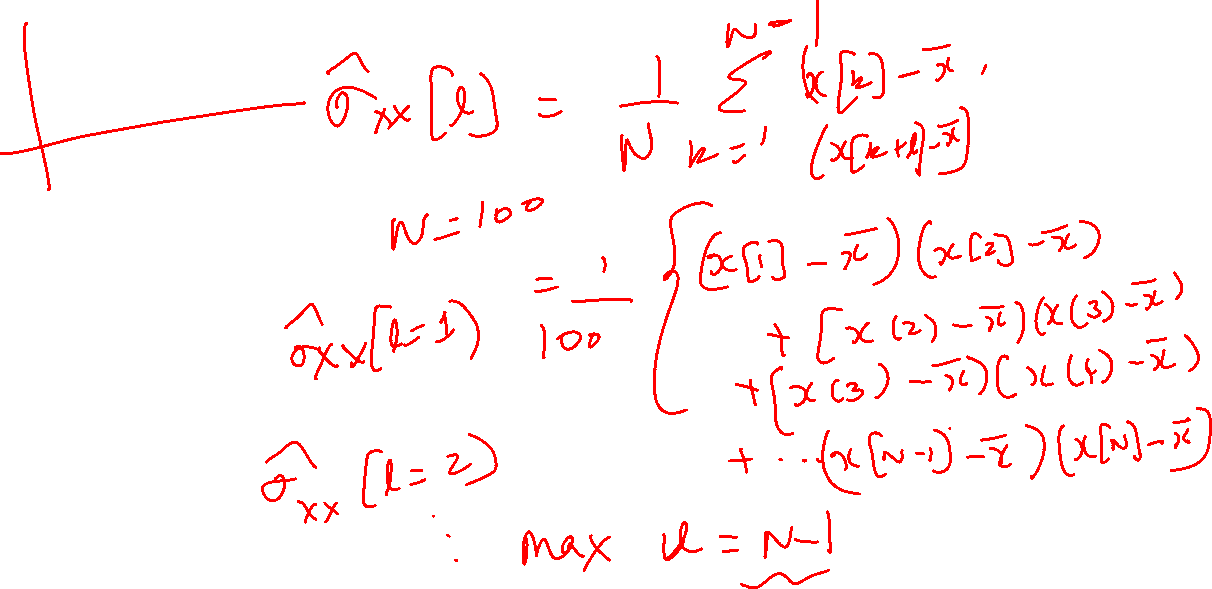 σ̂xx[l] = 1/N Σ_{k=1}^{N-1} (x[k] - x̄)
(x[k+l] - x̄]
N = 100
σ̂xx[l=1) = 1/100 { (x[1] - x̄)(x[2] - x̄)
+ [x(2) - x̄)(x(3) - x̄)
+ [x(3) - x̄)(x(4) - x̄)
+ ...(x[N-1) - x̄)(x[N] - x̄]
σ̂xx[l=2)
⋮ max l = N-1